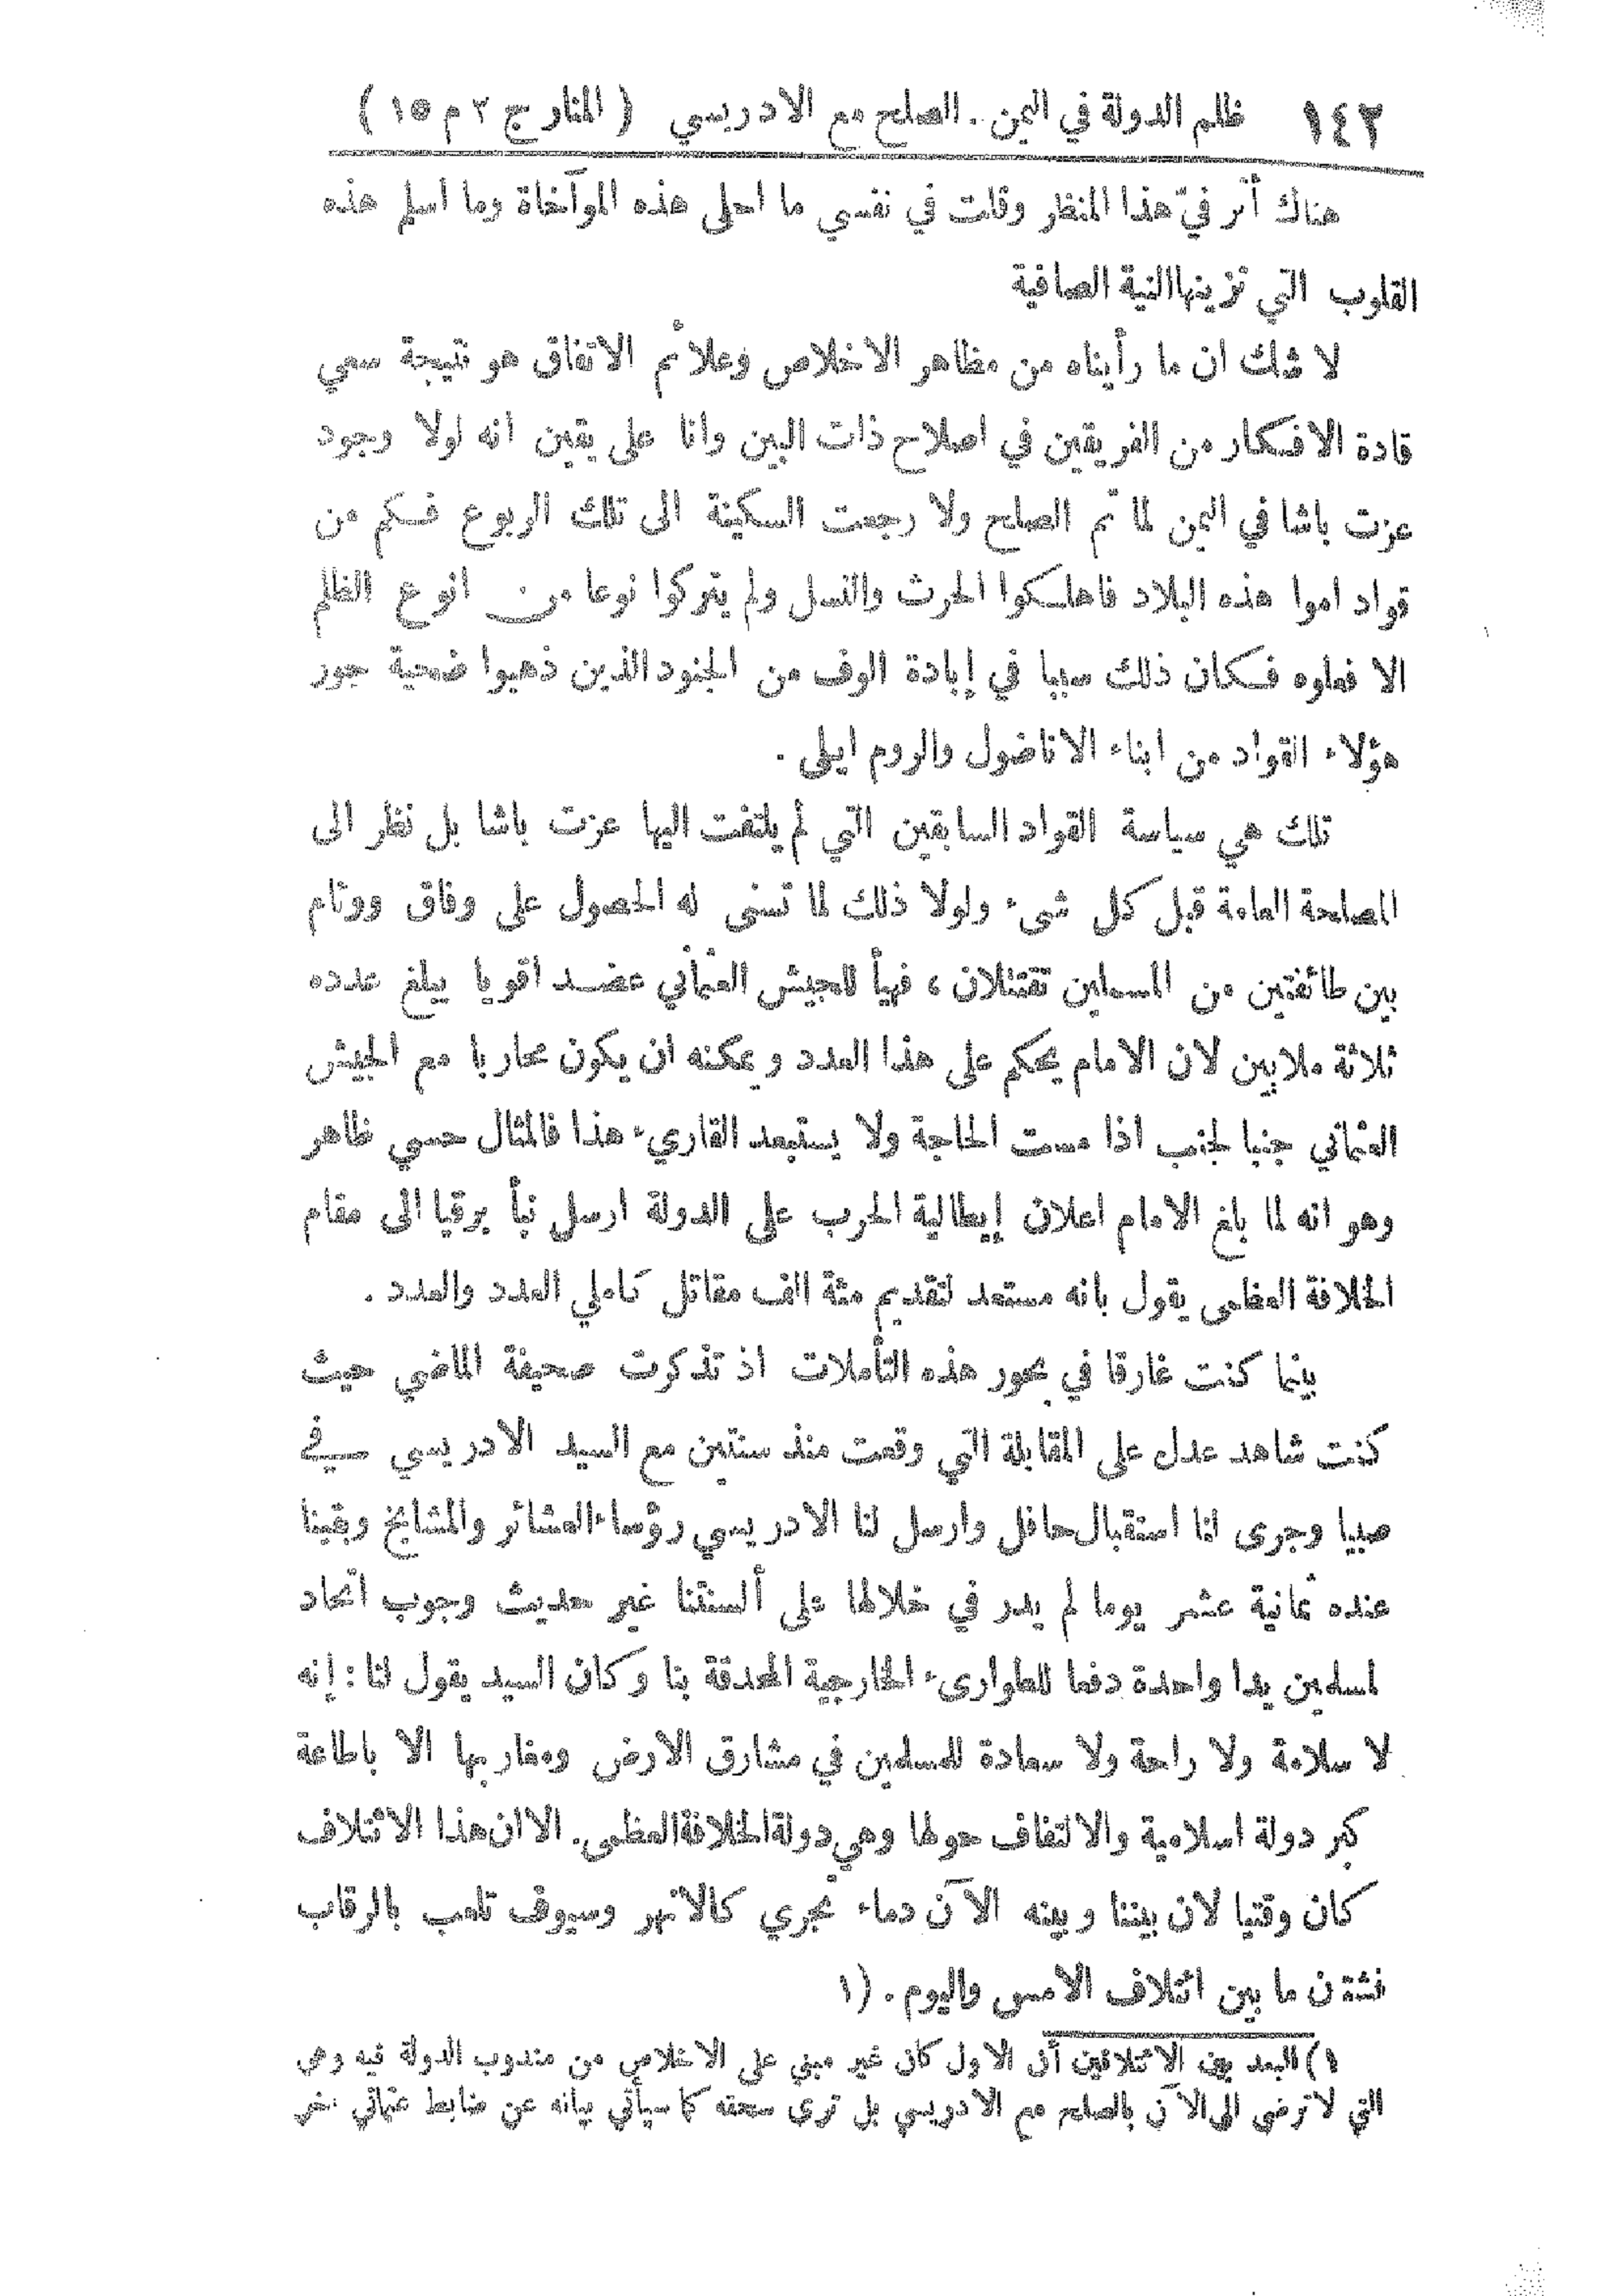 ١٤٢ ظلم الدولة في اليمن. الصلح مع الادريسي ( المنار ج ٢ م ١٥ )
هناك أثر فيّ هذا المنظر وقلت في نفسي ما احلى هذه المؤاخاة وما اسلم هذه
القلوب التي تزينها النية الصافية
لا شك ان ما رأيناه من مظاهر الاخلاص وعلائم الاتفاق هو نتيجة سعي
قادة الافكار من الفريقين في اصلاح ذات البين وانا على يقين انه لولا وجود
عزت باشا في اليمن لما تم الصلح ولا رجعت السكينة الى تلك الربوع فكم من
قواد اموا هذه البلاد فاهلكوا الحرث والنسل ولم يتركوا نوعا من انوع الظلم
الا فعلوه فكان ذلك سببا في إبادة الوف من الجنود الذين ذهبوا ضحية جور
هؤلاء القواد من ابناء الاناضول والروم ايلى .
تلك هي سياسة القواد السابقين التي لم يلتفت اليها عزت باشا بل نظر الى
المصلحة العامة قبل كل شيء ولولا ذلك لما تسنى له الحصول على وفاق ووئام
بين طائفتين من المسلمين تقتتلان ، فهيأ للجيش العثماني عضدا قويا يبلغ عدده
ثلاثة ملايين لان الامام يحكم على هذا العدد ويمكنه ان يكون محاربا مع الجيش
العثماني جنبا لجنب اذا مست الحاجة ولا يستبعد القاريء هذا فالمثال حسي ظاهر
وهو انه لما بلغ الامام اعلان إيطالية الحرب على الدولة ارسل نبأ برقيا الى مقام
الخلافة العظمى يقول بانه مستعد لتقديم مئة الف مقاتل كاملي العدد والعدد .
بينما كنت غارقا في بحور هذه التأملات اذ تذكرت صحيفة الماضي حيث
كنت شاهد عدل على المقابلة التي وقعت منذ سنتين مع السيد الادريسي في
صبيا وجرى لنا استقبال حافل وارسل لنا الادريسي رؤساء العشائر والمشايخ وبقينا
عنده ثمانية عشر يوما لم يدر في خلالها على ألسنتنا غير حديث وجوب اتحاد
لمسلمين يدا واحدة دفعا للطواريء الخارجية المحدقة بنا وكان السيد يقول لنا : إنه
لا سلامة ولا راحة ولا سعادة للمسلمين في مشارق الارض ومغاربها الا باطاعة
كبر دولة اسلامية والالتفاف حولها وهي دولة الخلافة العظمى. الا ان هذا الائتلاف
كان وقتيا لان بيننا وبينه الآن دماء تجري كالانهر وسيوف تلعب بالرقاب
فشتان ما بين ائتلاف الامس واليوم . (١
١) البعد بين الائتلافين أن الاول كان غير مبني على الاخلاص من مندوب الدولة فيه وهي
التي لا ترضى الى الآن بالصلح مع الادريسي بل ترى سحقه كما سيأتي بيانه عن ضابط عثماني